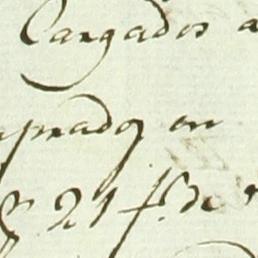 Cargados a
prados en
21 fs. de